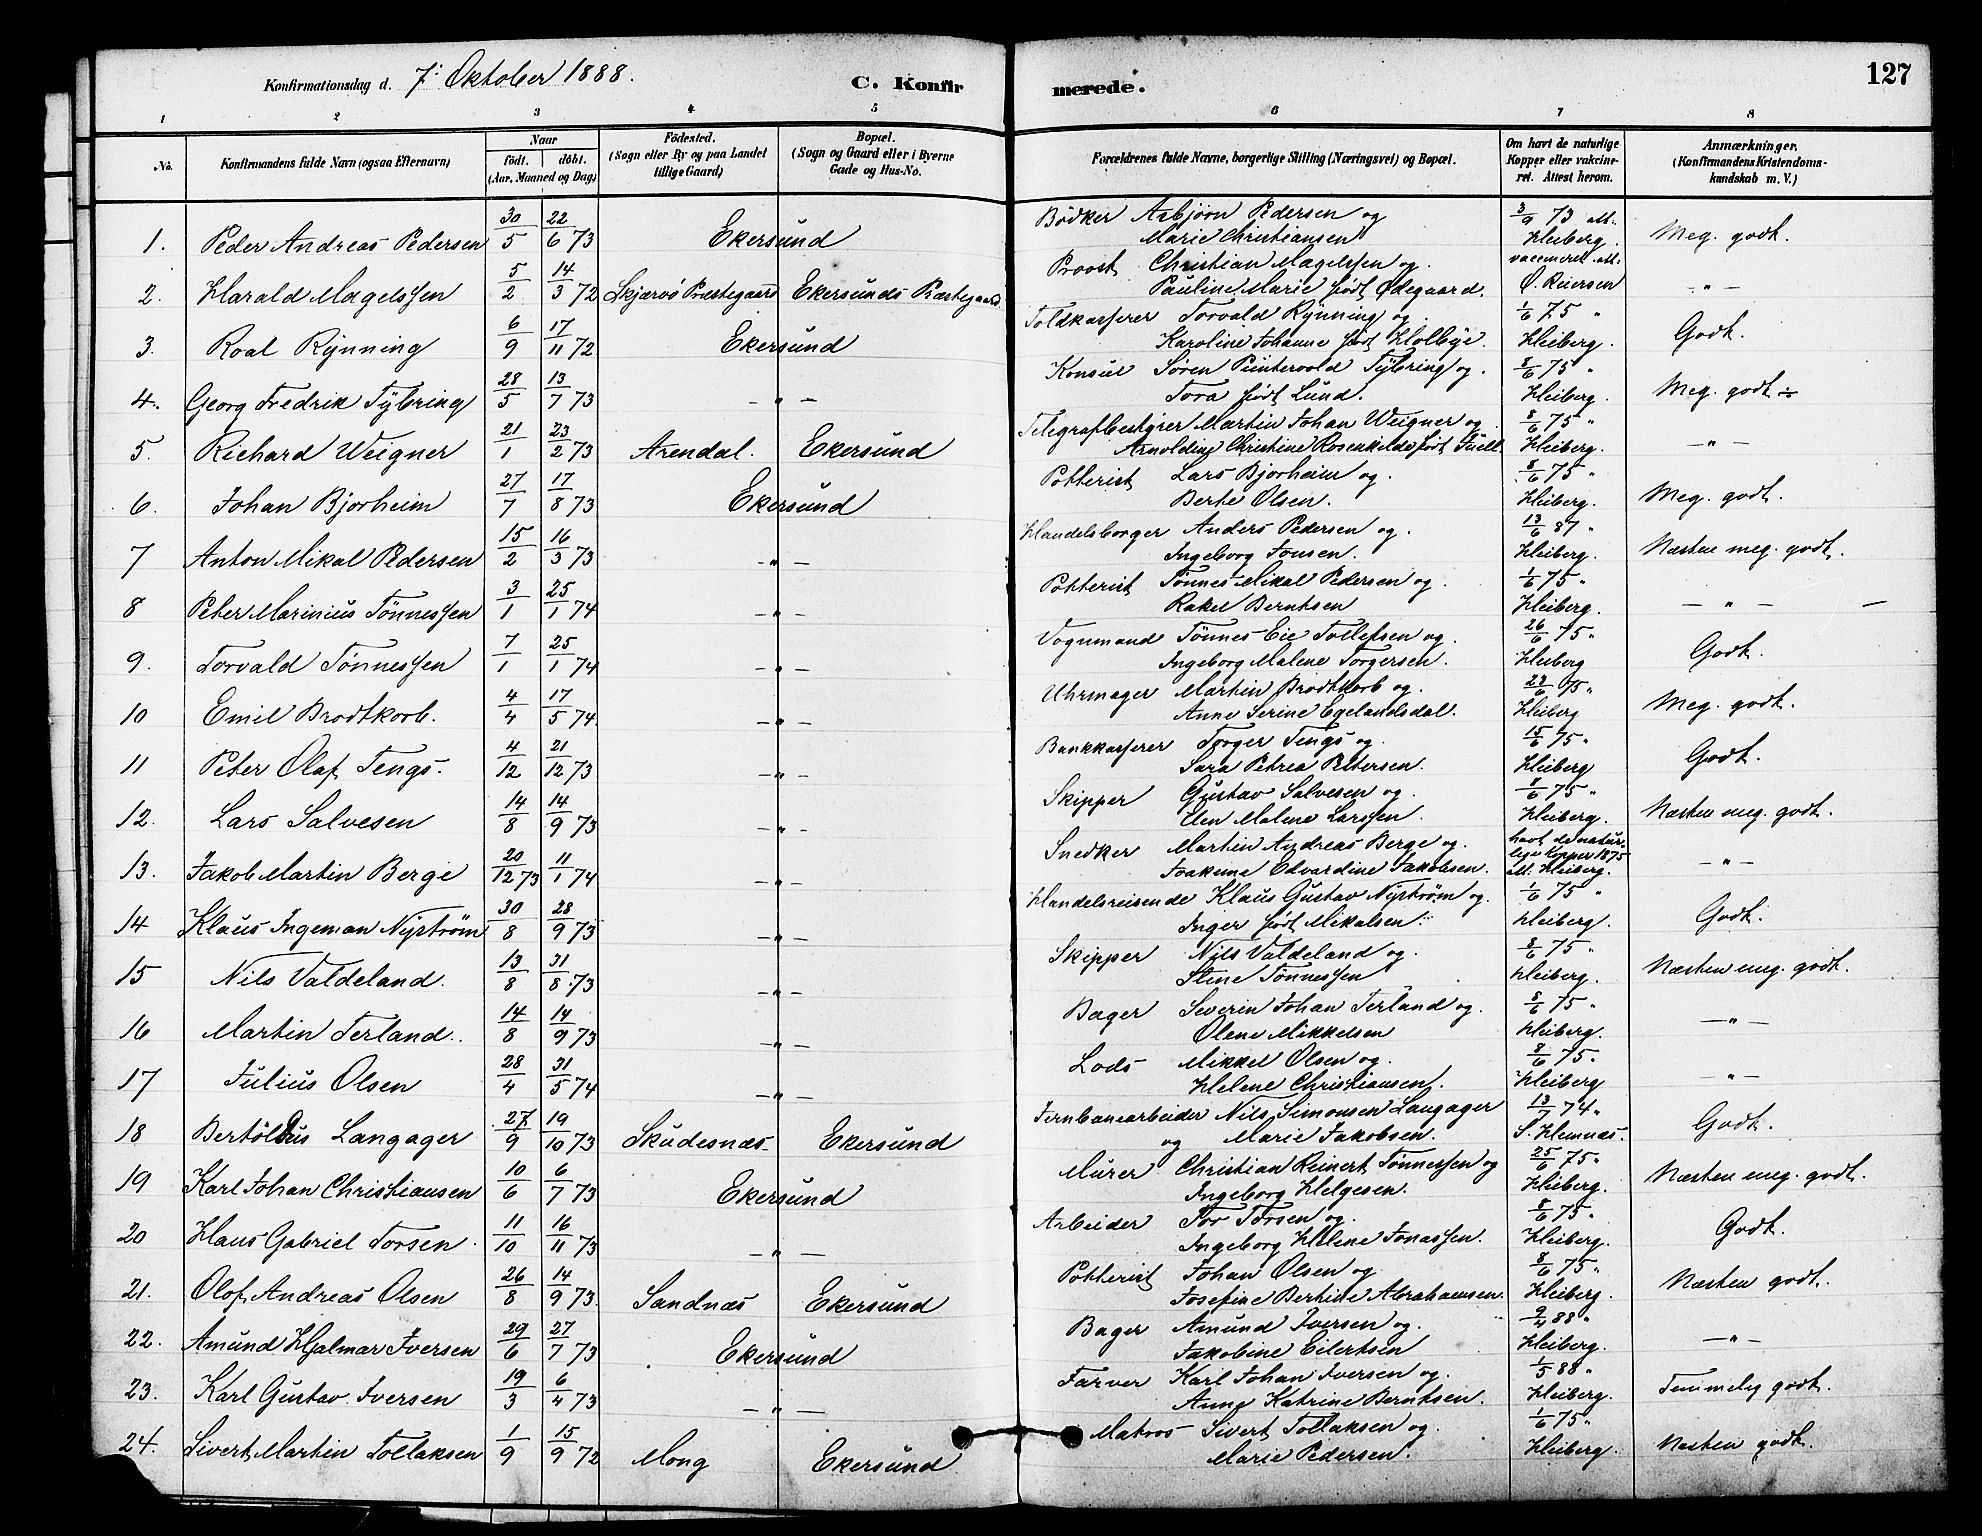 Konfirmationsdag d. 7. Oktober 1888. C. Konfirmerede. 127
1 2 3 4 5 6 7 8
No. Konfirmandens fulde Navn (ogsaa Efternavn) Naar födt. döbt. (Aar, Maaned og Dag) Födested. (Sogn eller By og paa Landet tillige Gaard) Bopæl. (Sogn og Gaard eller i Byerne Gade og Hus-No. Forældrenes fulde Navne, borgerlige Stilling (Næringsvei) og Bopæl. Om havt de naturlige Kopper eller vakcineret. Attest herom. Anmærkninger, (Konfirmandens Kristendomskundskab m. V.)
1. Peder Andreas Pedersen 30/5 22/6 73 Ekersund Bödker Asbjørn Pedersen og Marie Christiansen 3/9 73 att. Heiberg. Meg. godt.
2. Harald Magelssen 5/2 14/3 72 Skjærvö Præstegaard Ekersunds Præstegaard Proost Christian Magelssen og Pauline Marie født Ødegaard. vaccineret att. O. Reiersen -"-
3. Roal Rynning 6/9 17/11 72 Ekersund Toldkasserer Torvald Rynning og Karoline Johanne født Holbye. 1/6 75 " Heiberg. Godt.
4. Georg Fredrik Tybring 28/5 13/7 73 -"- Konsul Søren Püntervold Tybring og Tora født Lund. 8/6 75 " Heiberg. Meg. godt ÷
5. Richard Weigner 21/1 23/2 73 Arendal. Ekersund Telegrafbestyrer Martin Johan Weigner og Arnoldine Christine Rosenkilde født Tuell. 8/6 75 " Heiberg. -"-
6. Johan Bjorheim 27/7 17/8 73 Ekersund Potterist Lars Bjorheim og Berte Olsen. 8/6 75 " Heiberg. Meg. godt.
7 Anton Mikal Pedersen 15/2 16/3 73 -"- Handelsborger Anders Pedersen og Ingeborg Jonsen. 13/6 87 " Heiberg. Næsten meg. godt.
8 Peter Marinius Tönnessen 3/1 25/1 74 -"- Potterist Tönnes Mikal Pedersen og Rakel Berntsen 1/6 75 " Heiberg. -"-
9. Torvald Tönnessen 7/1 25/1 74 -"- Vognmand Tönnes Eie Tollefsen og Ingeborg Malene Torgersen. 26/6 75 " Heiberg Godt.
10 Emil Brodtkorb. 4/4 17/5 74 -"- Uhrmager Martin Brodtkorb og Anne Serine Egelandsdal. 23/6 75 " Heiberg Meg. godt.
11 Peter Olaf Tengs. 4/12 21/12 73 -"- Bankkasserer Torger Tengs og Sara Petrea Petersen. 15/6 75 " Heiberg Godt.
12. Lars Salvesen 14/8 14/9 73 -"- Skipper Gustav Salvesen og Elen Malene Larssen. 8/6 75 " Heiberg. Næsten meg. godt.
13. Jakob Martin Berge 20/12 73 11/1 74 -"- Snedker Martin Andreas Berge og Joakime Edvardine Jakobsen. havt de naturlige Kopper 1875 att. Heiberg. -"-
14 Klaus Ingeman Nyström 30/8 28/9 73 -"- Handelsreisende Klaus Gustav Nyström og Inger født Mikalsen. 1/6 75 " Heiberg. Godt.
15 Nils Valdeland. 13/8 31/8 73 -"- Skipper Nils Valdeland og Stine Tönnessen 8/6 75 " Heiberg. Næsten meg. godt.
16 Martin Terland. 14/8 14/9 73 -"- Bager Severin Johan Terland og Olene Mikkelsen 8/6 75 " Heiberg. -"-
17 Julius Olsen 28/4 31/5 74 -"- Lods Mikkel Olsen og Helene Christiansen. 8/6 75. Heiberg -"-
18 Bertoldus Langager 27/9 19/10 73 Skudesnæs Ekersund Jernbanearbeider Nils Simonsen Langager og Marie Jakobsen. 13/7 74 " S. Hemnæs. Godt.
19 Karl Johan Christiansen 10/6 6/7 73 Ekersund Murer Christian Reinert Tönnessen og Ingeborg Helgesen. 25/6 75 " Heiberg. Næsten meg. godt.
20 Hans Gabriel Torsen 11/10 16/11 73 -"- Arbeider Tor Torsen og Ingeborg Helene Jonassen. 8/6 75 " Heiberg. Godt.
21. Olof Andreas Olsen 26/8 14/9 73 Sandnæs Ekersund Potterist Johan Olsen og Josefine Bertine Abrahamsen. 8/6 75 " Heiberg. Næsten godt.
22. Amund Hjalmar Iversen 29/6 27/7 73 Ekersund Bager Amund Iversen og Jakobine Eilertsen 9/4 88 " Heiberg. -"-
23. Karl Gustav Iversen 19/3 6/4 73 -"- Farver Karl Johan Iversen og Anne Katrine Berntsen. 1/5 88 " Heiberg. Temmelig godt.
24. Sivert Martin Tollaksen 1/9 15/9 72 Mong Ekersund Matros Sivert Tollaksen og Marie Pedersen. 1/6 75 " Heiberg. Næsten godt.